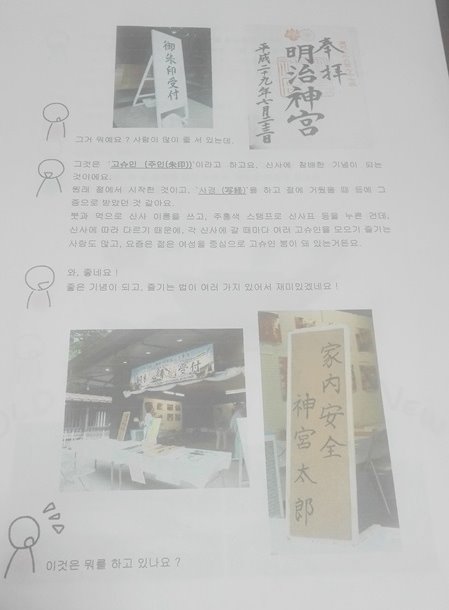 御朱印受付
奉拝
明治神宮
平成二十九年七月二十三日
그거 뭐예요 ? 사람이 많이 줄 서 있는데.
그것은 '고슈인 (주인(朱印))'이라고 하고요, 신사에 참배한 기념이 되는
것이에요.
원래 절에서 시작한 것이고, '사경 (写経)'을 하고 절에 거원을 때 등에 그
증으로 받았던 것 같아요.
붓과 먹으로 신사 이름을 쓰고, 주홍색 스탬프로 신사표 등을 누른 건데,
신사에 따라 다르기 때문에, 각 신사에 갈 때마다 여러 고슈인을 모으기 즐기는
사람도 많고, 요즘은 젊은 여성을 중심으로 고슈인 붐이 돼 있는거든요.
와, 좋네요 !
좋은 기념이 되고, 즐기는 법이 여러 가지 있어서 재미있겠네요 !
受付
家内安全
神宮太郎
이것은 뭐를 하고 있나요 ?